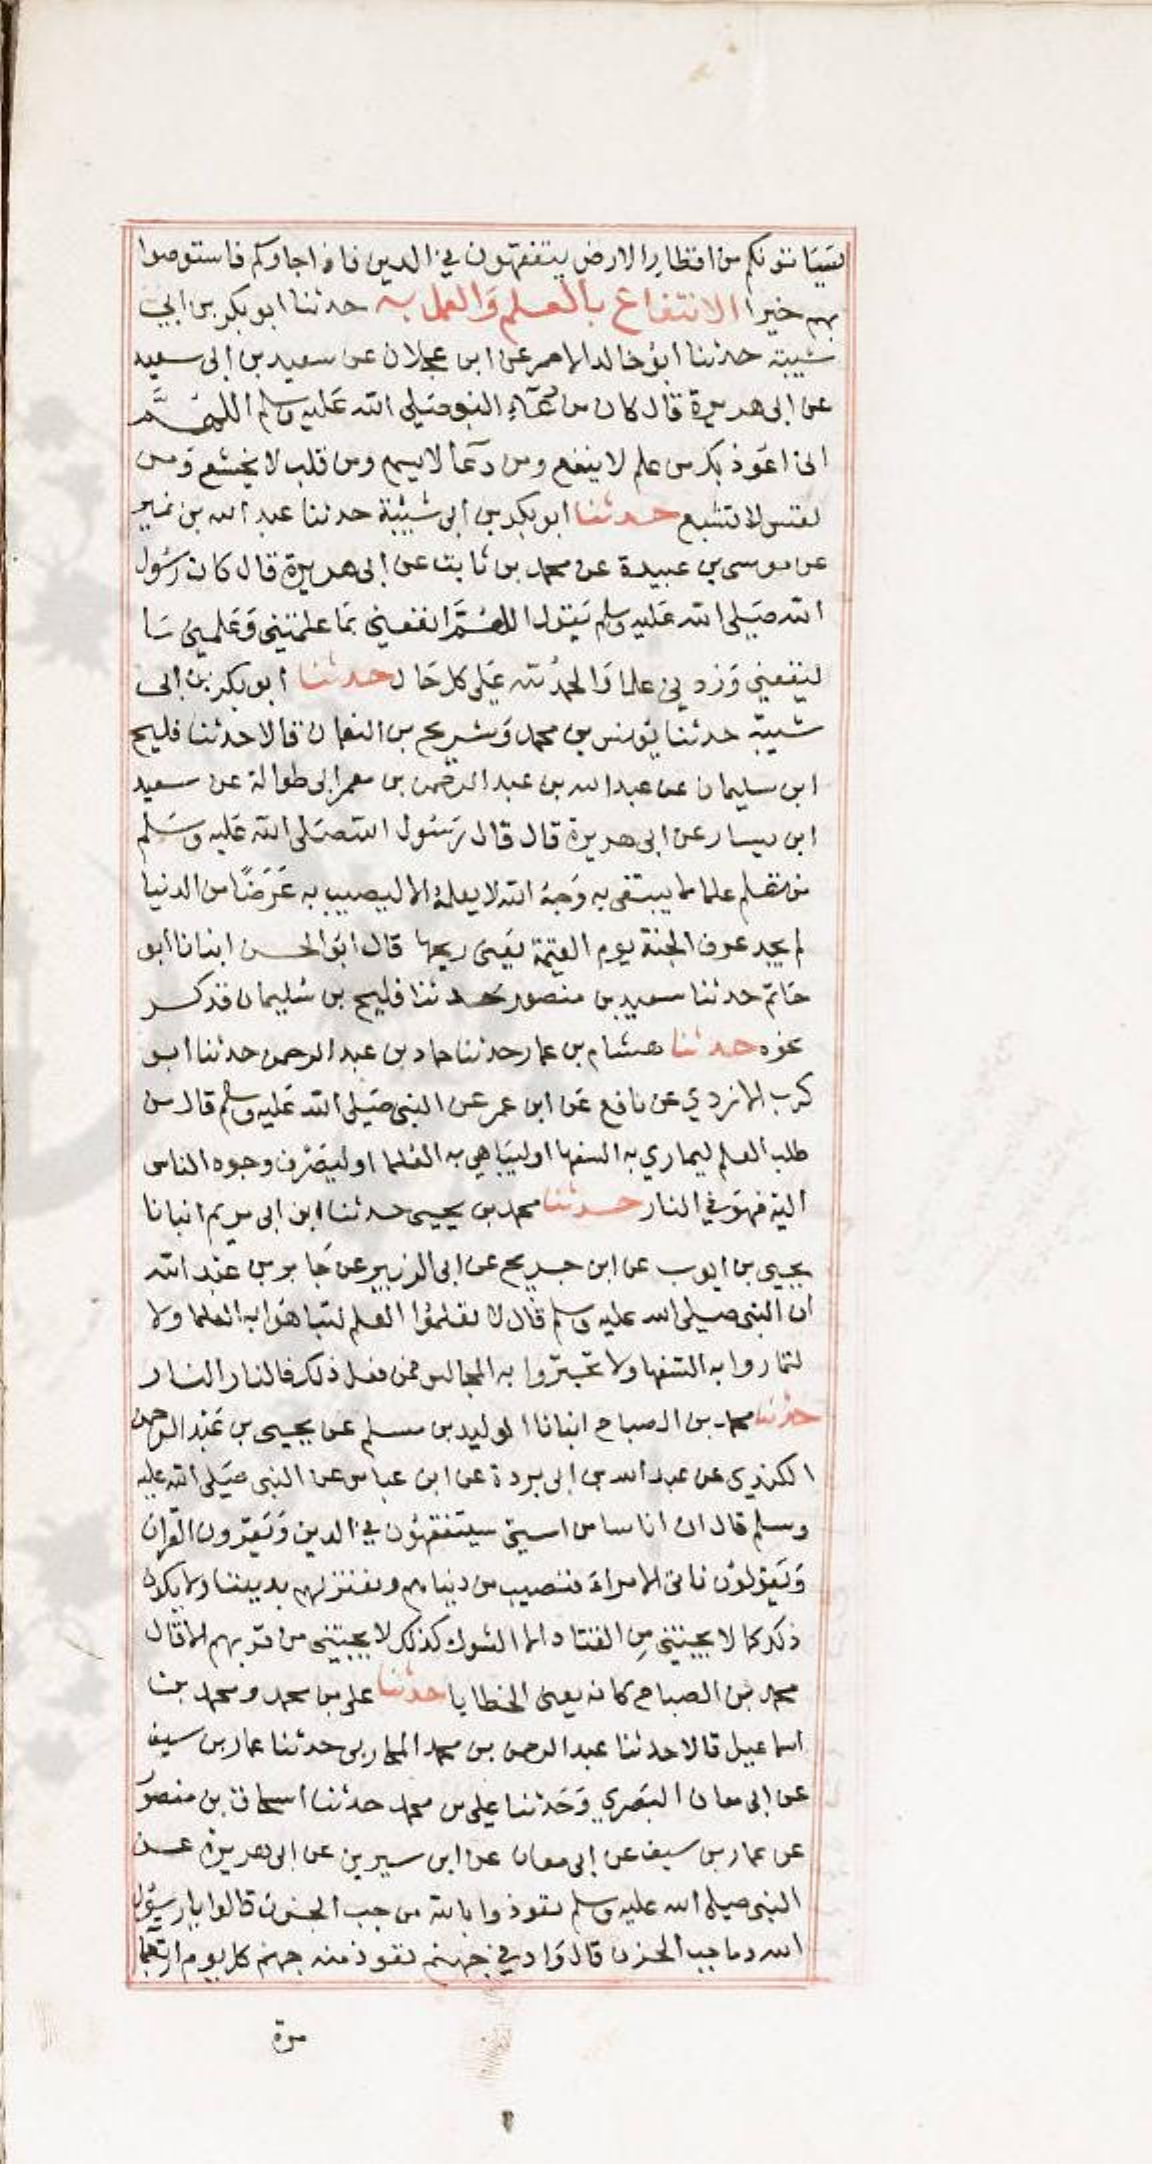 سياتونكم من اقطار الارض يتفقهون في الدين فاذا جاوكم فاستوصوا
بهم خيرا الانتفاع بالعلم والعمل به حدثنا ابو بكر بن ابي
شيبة حدثنا ابو خالد الاحمر عن ابن عجلان عن سعيد بن ابي سعيد
عن ابي هريرة قال كان من دعاء النبي صلى الله عليه وسلم اللهم
اني اعوذ بك من علم لا ينفع ومن دعا لا يسمع ومن قلب لا يخشع ومن
نفس لا تشبع حدثنا ابو بكر بن ابي شيبة حدثنا عبد الله بن نمير
عن موسى بن عبيدة عن محمد بن ثابت عن ابي هريرة قال كان رسول
الله صلى الله عليه وسلم يقول اللهم انفعني بما علمتني وعلمني ما
ينفعني وزدني علما والحمد لله على كل حال حدثنا ابو بكر بن ابي
شيبة حدثنا يونس بن محمد وشريح بن النعمان قالا حدثنا فليح
ابن سليمان عن عبد الله بن عبد الرحمن بن معمر ابي طوالة عن سعيد
ابن يسار عن ابي هريرة قال قال رسول الله صلى الله عليه وسلم
من تعلم علما مما يبتغى به وجه الله لا يعلمه الا ليصيب به عرضا من الدنيا
لم يجد عرف الجنة يوم القيمة يعني ريحها قال ابو الحسن انبانا ابو
حاتم حدثنا سعيد بن منصور حدثنا فليح بن سليمان فذكر
نحوه حدثنا هشام بن عمار حدثنا حماد بن عبد الرحمن حدثنا ابو
كرب الازدي عن نافع عن ابن عمر عن النبي صلى الله عليه وسلم قال من
طلب العلم ليماري به السفها او ليباهي به العلما او ليصرف وجوه الناس
اليه فهو في النار حدثنا محمد بن يحيى حدثنا ابن ابي مريم انبانا
يحيى بن ايوب عن ابن جريج عن ابي الزبير عن جابر بن عبد الله
ان النبي صلى الله عليه وسلم قال لا تعلموا العلم لتباهوا به العلما ولا
لتماروا به السفها ولا تخيروا به المجالس فمن فعل ذلك فالنار النار
حدثنا محمد بن الصباح انبانا الوليد بن مسلم عن يحيى بن عبد الرحمن
الكندي عن عبد الله بن ابي بردة عن ابن عباس عن النبي صلى الله عليه
وسلم قال ان اناسا من امتي سيتفقهون في الدين ويقرون القران
ويقولون ناتي الامراء فنصيب من دنياهم ونعتزلهم بديننا ولا يكون
ذلك كما لا يجتنى من القتاد الا الشوك كذلك لا يجتنى من قربهم الا قال
محمد بن الصباح كانه يعني الخطايا حدثنا علي بن محمد ومحمد بن
اسماعيل قالا حدثنا عبد الرحمن بن محمد المحاربي حدثنا عمار بن سيف
عن ابي معان البصري وحدثنا علي بن محمد حدثنا اسحاق بن منصور
عن عمار بن سيف عن ابي معان عن ابن سيرين عن ابي هريرة عن
النبي صلى الله عليه وسلم تعوذوا بالله من جب الحزن قالوا يا رسول
الله وما جب الحزن قال واد في جهنم تعوذ منه جهنم كل يوم اربعماية
مرة